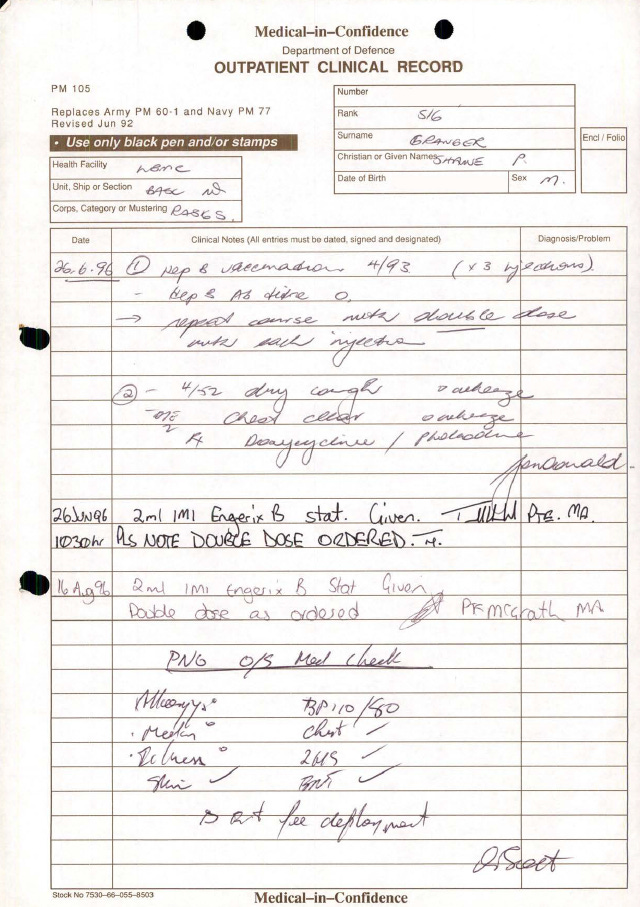 Medical–in–Confidence
Department of Defence
OUTPATIENT CLINICAL RECORD
PM 105
Replaces Army PM 60-1 and Navy PM 77
Revised Jun 92
• Use only black pen and/or stamps
Number
Rank SIG
Surname GRANGER
Christian or Given Names SHANE P.
Date of Birth Sex M.
Encl / Folio
Health Facility
Unit, Ship or Section BASC
Corps, Category or Mustering RASIGS.
Date Clinical Notes (All entries must be dated, signed and designated) Diagnosis/Problem
26.6.96 ① Hep B vaccination 4/93 (x 3 injections).
- Hep B Ab titre 0.
→ repeat course with double dose
with each injection
② - 4/52 dry cough o wheeze
chest clear o wheeze
Rx Doxycycline / Pholcodine
26JUN96 2ml IMI Engerix B stat. Given. Pte. MA.
1030hr PLS NOTE DOUBLE DOSE ORDERED.
16 Aug 96 2ml IMI Engerix B Stat Given
Double dose as ordered Pte McGrath MA
PNG O/S Med Check
Allergys o BP 110/80
. Meds o Chest ✓
. Illness o 2HS ✓
Skin ✓ ✓
fee deployment
Scott
Stock No 7530–66–055–8503
Medical–in–Confidence